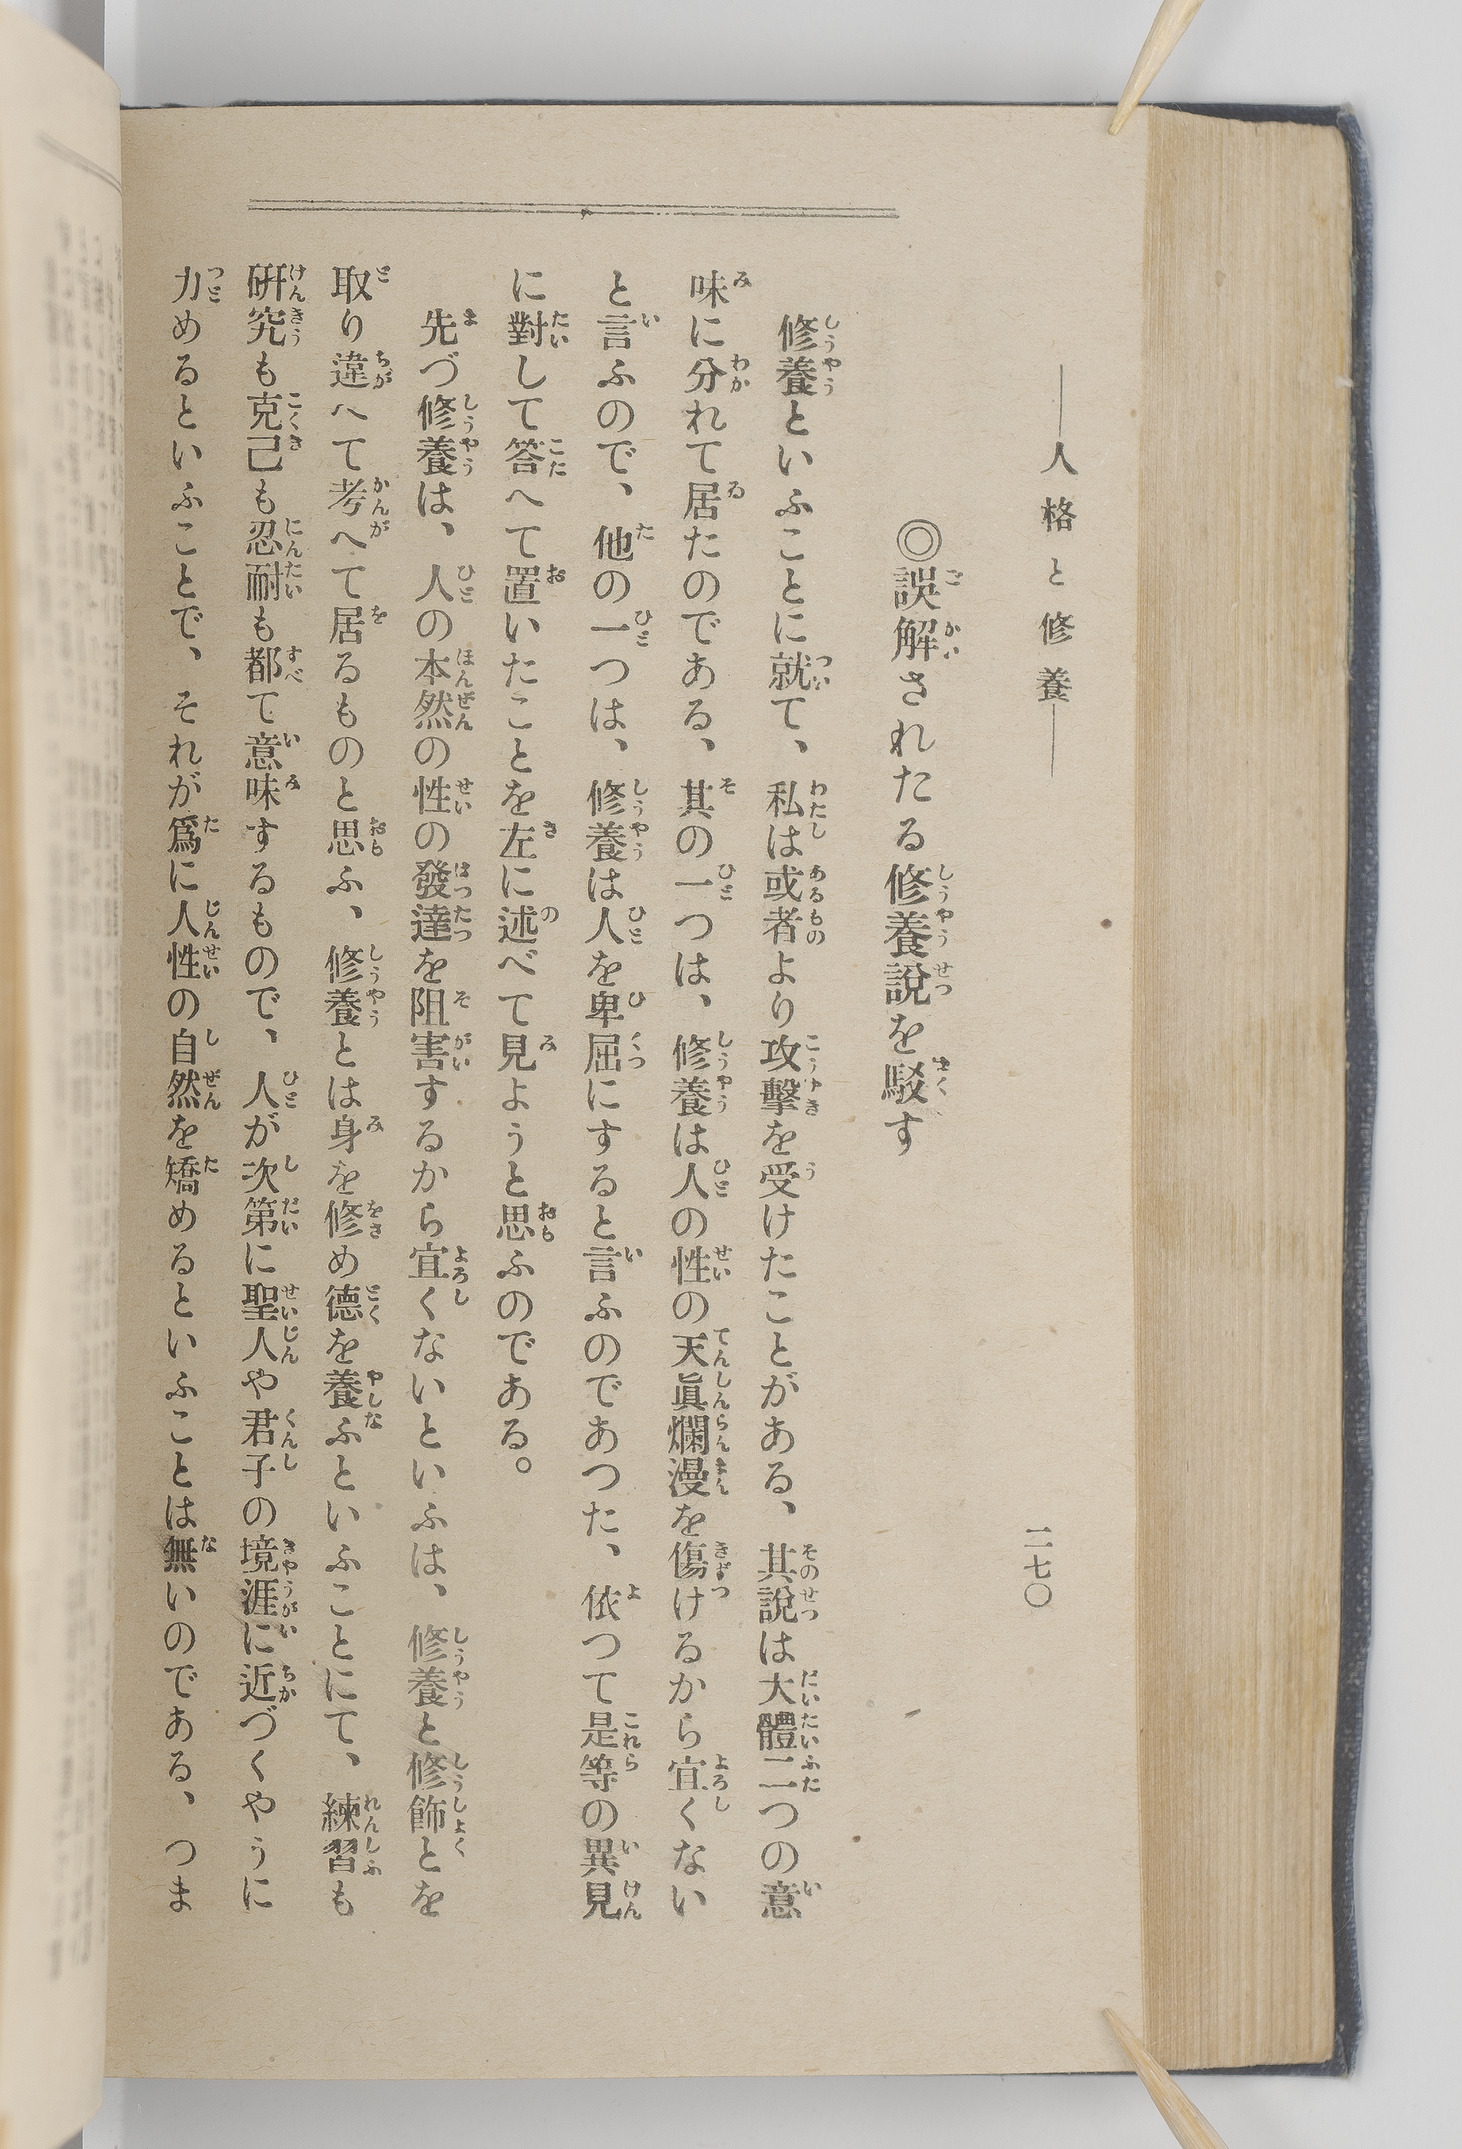 ――人格と修養――
二七〇
◎誤解されたる修養說を駁す
修養といふことに就て、私は或者より攻擊を受けたことがある、其說は大體二つの意
味に分れて居たのである、其の一つは、修養は人の性の天眞爛漫を傷けるから宜くない
と言ふので、他の一つは、修養は人を卑屈にすると言ふのであつた、依つて是等の異見
に對して答へて置いたことを左に述べて見ようと思ふのである。
先づ修養は、人の本然の性の發達を阻害するから宜くないといふは、修養と修飾とを
取り違へて考へて居るものと思ふ、修養とは身を修め德を養ふといふことにて、練習も
硏究も克己も忍耐も都て意味するもので、人が次第に聖人や君子の境涯に近づくやうに
力めるといふことで、それが爲に人性の自然を矯めるといふことは無いのである、つま